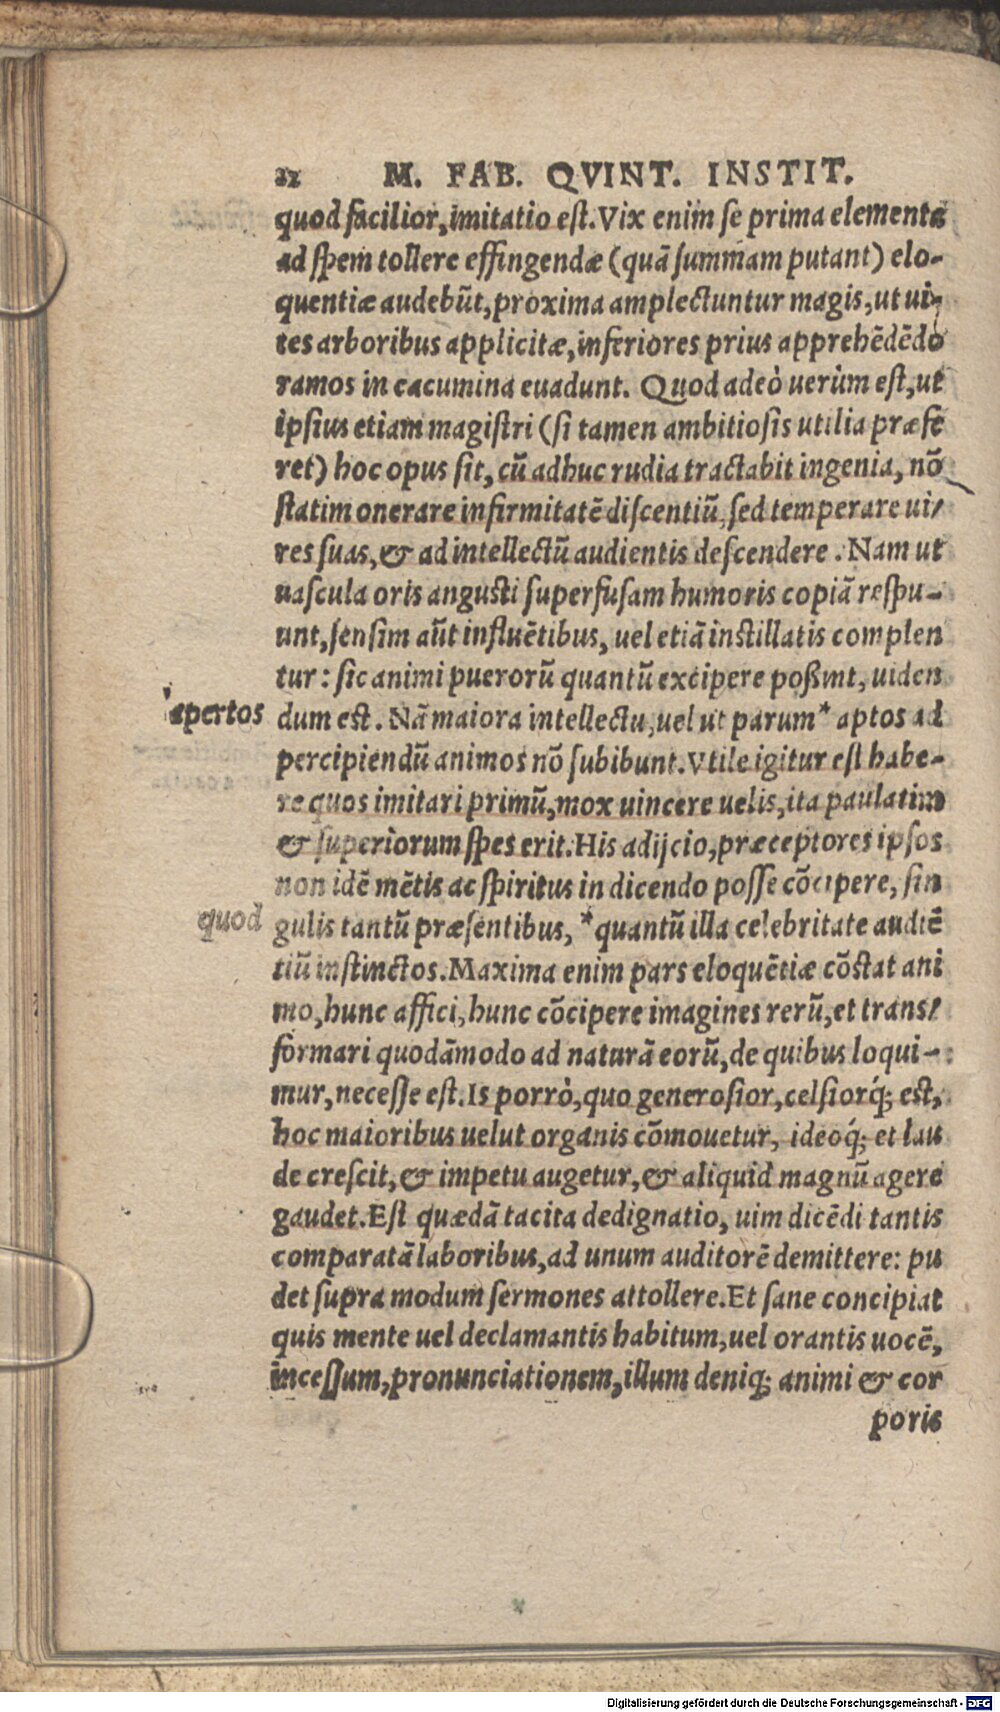 22 M. FAB. QVINT. INSTIT.
quod facilior, imitatio est. Vix enim se prima elementa
ad spem tollere effingendæ (quā summam putant) elo-
quentiæ audebūt, proxima amplectuntur magis, ut ui-
tes arboribus applicitæ, inferiores prius apprehēdēdo
ramos in cacumina euadunt. Quod adeò uerùm est, ut
ipsius etiam magistri (si tamen ambitiosis utilia præfe
ret) hoc opus sit, cū adhuc rudia tractabit ingenia, nō
statim onerare infirmitatē discentiū, sed temperare ui/
res suas, & ad intellectū audientis descendere. Nam ut
uascula oris angusti superfusam humoris copiā respu-
unt, sensim aūt influētibus, uel etiā instillatis complen
tur: sic animi puerorū quantū excipere poßint, uiden
apertos dum est. Nā maiora intellectu, uel ut parum* aptos ad
percipiendū animos nō subibunt. Vtile igitur est habe-
re quos imitari primū, mox uincere uelis, ita paulatim
& superiorum spes erit. His adijcio, præceptores ipsos
non idē mētis ac spiritus in dicendo posse cōcipere, sin
quod gulis tantū præsentibus, *quantū illa celebritate audiē
tiū instinctos. Maxima enim pars eloquētiæ cōstat ani
mo, hunc affici, hunc cōcipere imagines rerū, et trans/
formari quodāmodo ad naturā eorū, de quibus loqui-
mur, necesse est. Is porrò, quo generosior, celsiorq́; est,
hoc maioribus uelut organis cōmouetur, ideoq́; et lau
de crescit, & impetu augetur, & aliquid magnū agere
gaudet. Est quædā tacita dedignatio, uim dicēdi tantis
comparatā laboribus, ad unum auditorē demittere: pu
det supra modum sermones attollere. Et sane concipiat
quis mente uel declamantis habitum, uel orantis uocē,
incessum, pronunciationem, illum deniq; animi & cor
poris
Digitalisierung gefördert durch die Deutsche Forschungsgemeinschaft - DFG